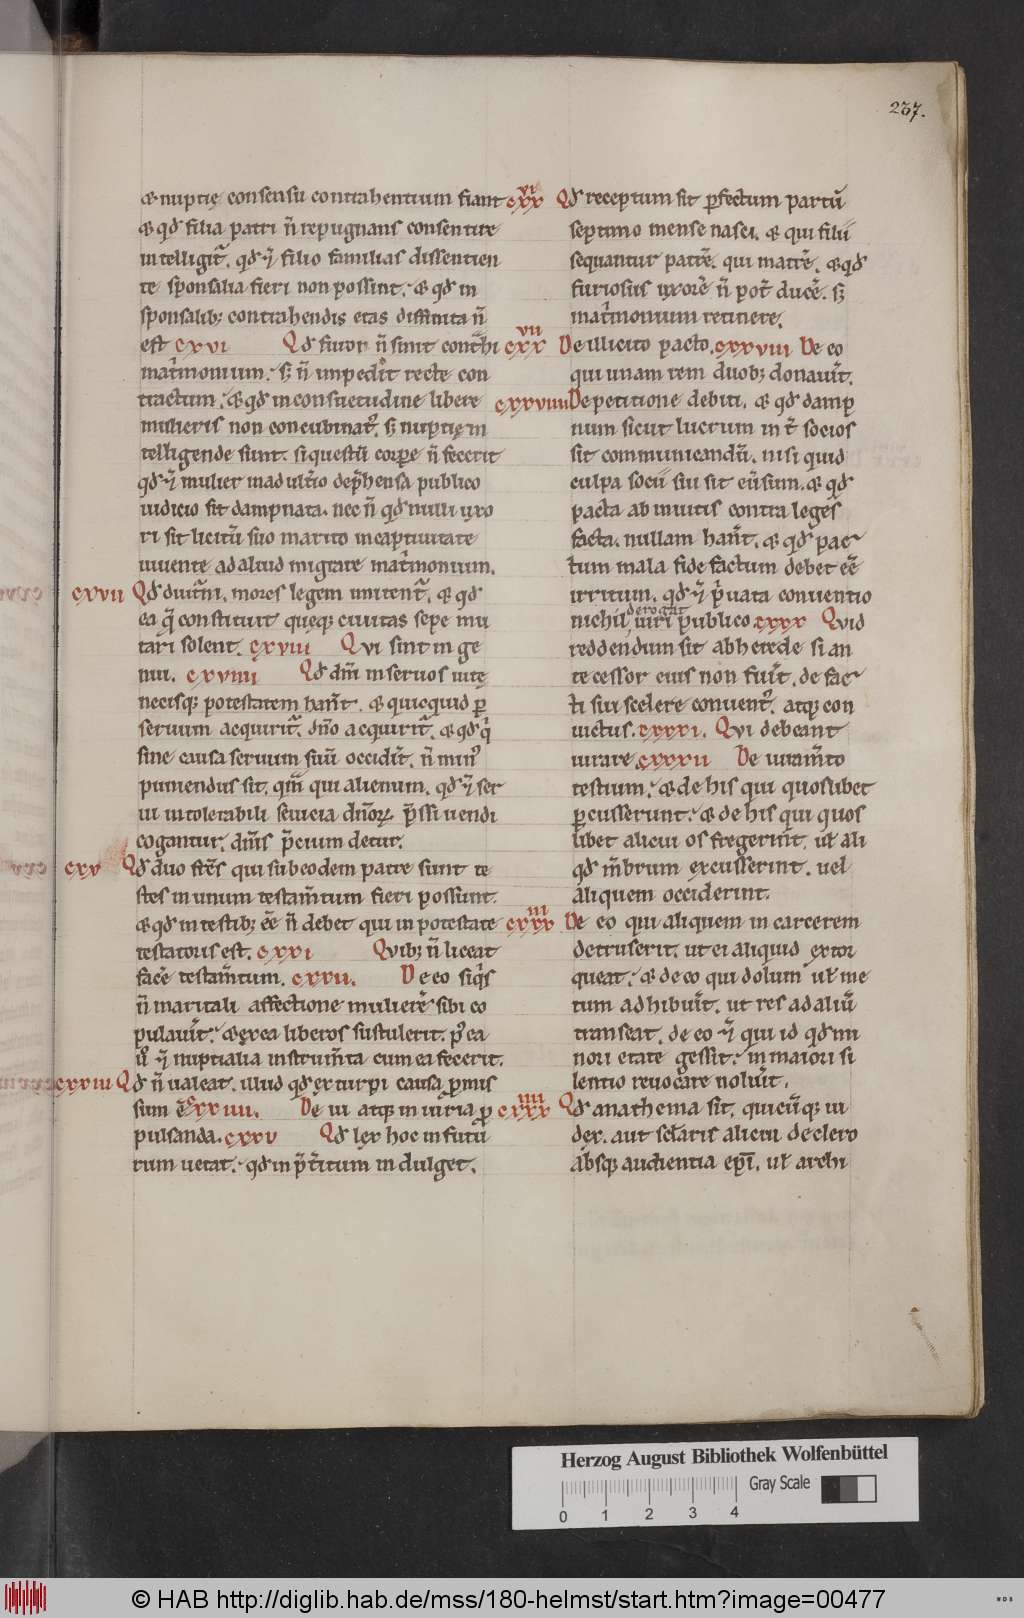 237.
& nuptię consensu contrahentium fiant
& qđ filia patri ñ repugnans consentire
intelligit̃. qđ ⁊ filio familias dissentien
te sponsalia fieri non possint. & qđ in
sponsalib; contrahendis etas diffinita ñ
est cxvi Qđ furor ñ sinit cont̃hi
mat̾monium. s; ñ impedit recte con
tractum. & qđ in consuetudine libere
mulieris non concubinat᷒. s; nuptię in
telligende sunt. si questũ corpore ñ fecerit
qđ ⁊ mulier in adult̾io dep̃hensa publico
iudicio sit dampnata. nec ñ qđ nulli uxo
ri sit licitũ suo marito in captiuitate
uiuente ad aliud migrare mat̾monium.
cxvii Qđ diuit̾ni. mores legem imitent̃. & qđ
ea q̃ constituit queq; ciuitas sepe mu
tari solent. cxviii Qvi sint in ge
nui. cxviiii Qđ dñi in seruos uitę
necisq; potestatem hañt. & quicquid p̱
seruum acquirit̃. dño acquirit̃. & qđ q̾
sine causa seruum suũ occidit̾. ñ min᷒
puniendus sit. qm̃ qui alienum. qđ ⁊ ser
ui intolerabili seuicia dñoꝝ p̃ssi uendi
cogantur. dñis p̃cium detur.
cxx Qđ duo fr̃es qui sub eodem patre sunt te
stes in unum testam̃tum fieri possunt.
& qđ in testib; eẽ ñ debet qui in potestate
testatoris est. cxxi Qvib; ñ liceat
facẽ testam̃tum. cxxii. De eo si q̾s
ñ maritali affectione mulierẽ sibi co
pulauit̾. & ex ea liberos sustulerit. p᷒ ea
ũ ⁊ nuptialia instrum̃ta cum ea fecerit.
cxxiii Qđ ñ ualeat. illud qđ ex turpi causa ꝓmis
sum ẽ cxxiiii. De ui atq; iniuria ꝓ
pulsanda. cxxv Qđ lex hoc in futũ
rum uetat. qđ in p̃t̾itum indulget.
cxxvi Qđ receptum sit ꝑfectum partũ
septimo mense nasci. & qui filii
sequantur patrẽ. qui matrẽ. & qđ
furiosus uxorẽ ñ pot̾ ducẽ. s;
mat̾monium retinere.
cxxvii De illicito pacto. cxxviii De eo
qui unam rem duob; donauit̾.
cxxviiii De petitione debiti. & qđ damp
num sicut lucrum int̾ socios
sit communicandũ. nisi quid
culpa socii siu sit euersum. & qđ
pacta ab inuitis contra leges
facta. nullam hañt. & qđ pac
tum mala fide factum debet eẽ
irritum. qđ ⁊ p̾uata conuentio
nichil iuri publico derogat cxxx Qvid
reddendum sit ab herede si an
tecessor eius non fuit̾. de fac
ti sui scelere conuent᷒. atq; con
uictus. cxxxi. Qvi debeant
iurare. cxxxii De iuram̃to
testium. & de his qui quoslibet
ꝑcusserunt. & de his qui quos
libet alicui os fregerint. uł ali
qđ m̃brum excusserint. uel
aliquem occiderint.
cxxxiii De eo qui aliquem in carcerem
detruserit. ut ei aliquid extor
queat. & de eo qui dolum uł me
tum adhibuit̾. ut res ad aliũ
transeat. de eo ⁊ qui id qđ mi
nori etate gessit. in maiori si
lentio reuocare noluit̾.
cxxxiiii Qđ anathema sit. quicũq; iu
dex. aut secl̃aris alicui de clero
absq; audientia ep̃i. uł archi
Herzog August Bibliothek Wolfenbüttel
Gray Scale
0 1 2 3 4
© HAB http://diglib.hab.de/mss/180-helmst/start.htm?image=00477